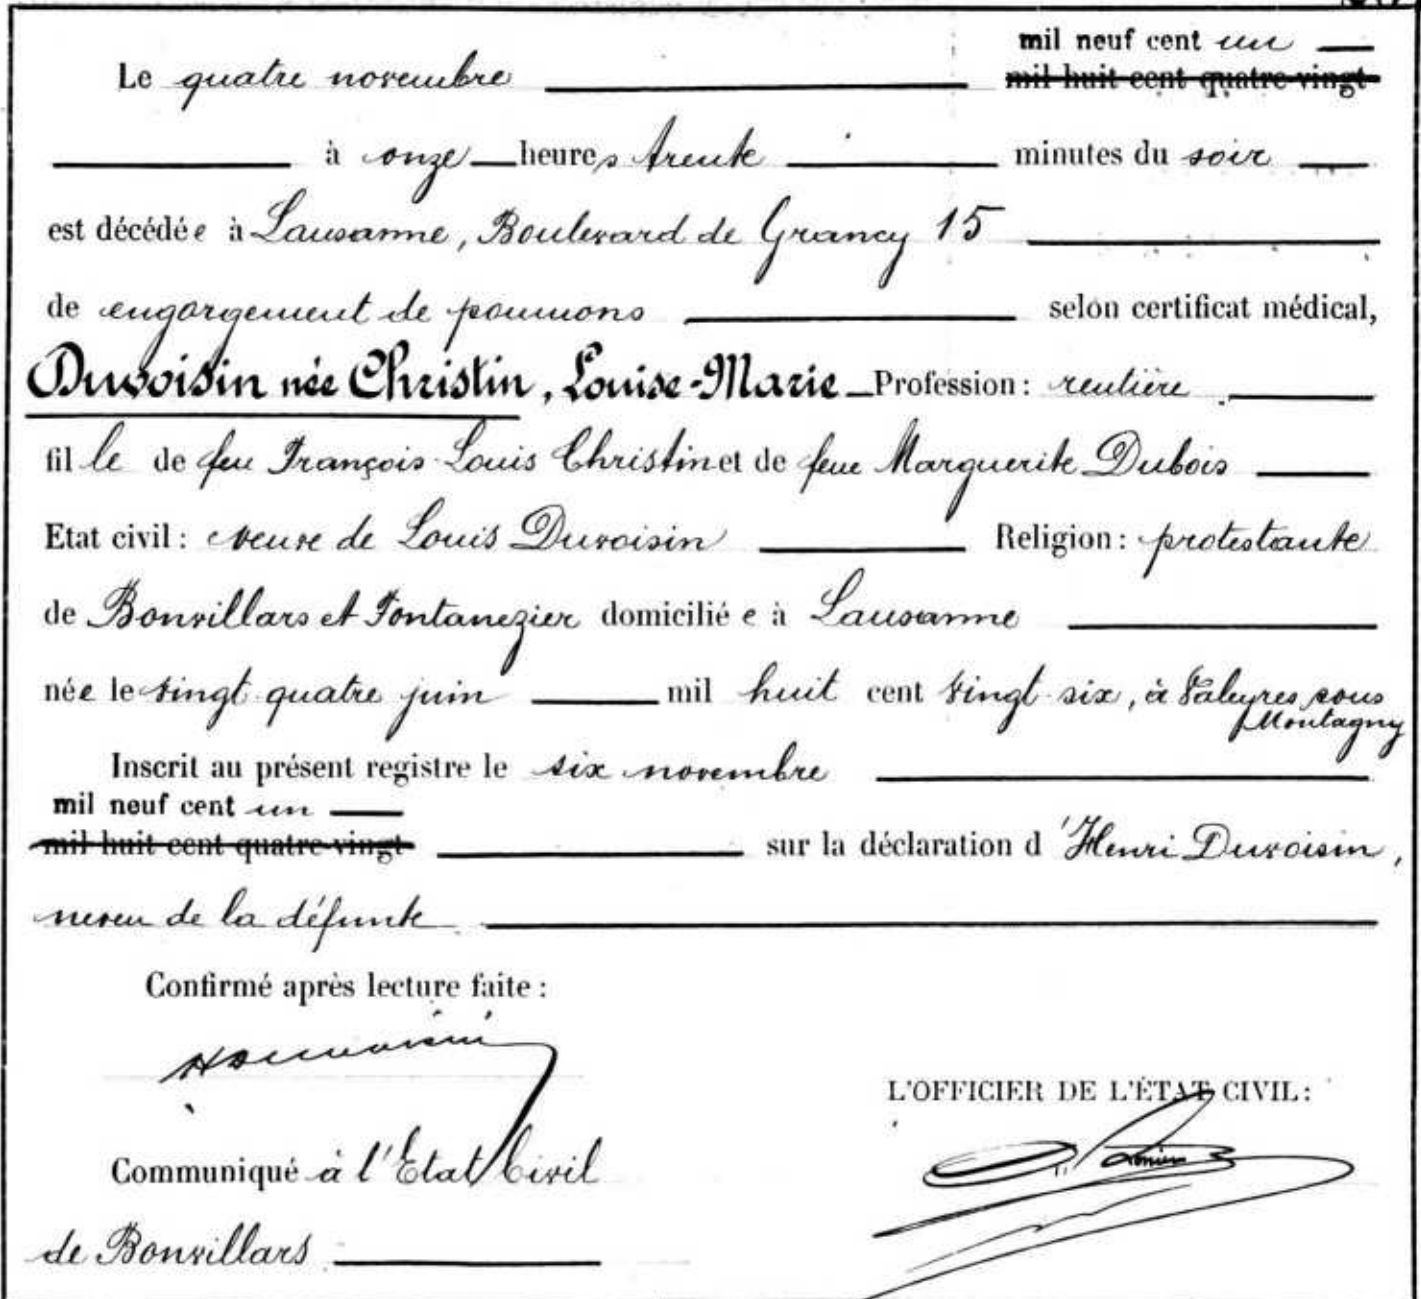 mil neuf cent un
Le quatre novembre mil huit cent quatre-vingt
à onze heures trente minutes du soir
est décédée à Lausanne, Boulevard de Grancy 15
de engorgement de poumons selon certificat médical,
Duvoisin née Christin, Louise-Marie Profession: rentière
fille de feu François-Louis Christin et de feue Marguerite Dubois
Etat civil: veuve de Louis Duvoisin Religion: protestante
de Bonvillars et Fontanezier domiciliée à Lausanne
née le vingt quatre juin mil huit cent vingt six, à Valeyres sous
Montagny
Inscrit au présent registre le six novembre
mil neuf cent un
mil huit cent quatre-vingt sur la déclaration d'Henri Duvoisin,
neveu de la défunte
Confirmé après lecture faite:
HDuvoisin
L'OFFICIER DE L'ÉTAT CIVIL:
Communiqué à l'Etat Civil
de Bonvillars